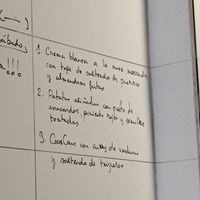 1. Crema blanca a la nuez moscada
con tope de salteado de
y almendras fritas
2. Patatas aliñadas con pesto de
anacardos, pimiento rojo y semillas
tostadas
3. Couscous con curry de verduras
y salteado de trigueros
!!!